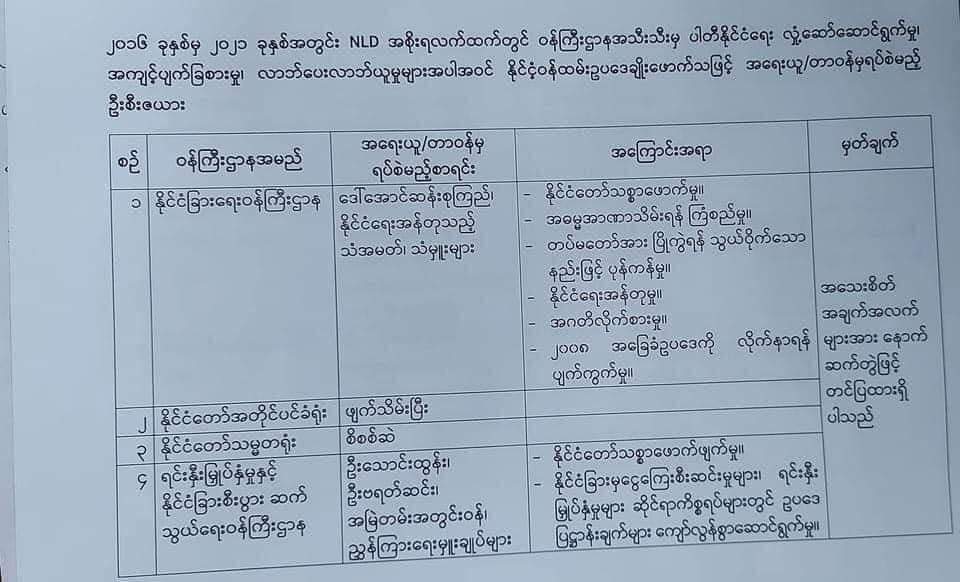 ၂၀၁၆ ခုနှစ်မှ ၂၀၂၁ ခုနှစ်အတွင်း NLD အစိုးရလက်ထက်တွင် ဝန်ကြီးဌာနအသီးသီးမှ ပါတီနိုင်ငံရေး လှုံ့ဆော်ဆောင်ရွက်မှု၊
အကျင့်ပျက်ခြစားမှု၊ လာဘ်ပေးလာဘ်ယူမှုများအပါအဝင် နိုင်ငံ့ဝန်ထမ်းဥပဒေချိုးဖောက်သဖြင့် အရေးယူ/တာဝန်မှရပ်စဲမည့်
ဦးစီးဇယား
စဉ်
ဝန်ကြီးဌာနအမည်
အရေးယူ/တာဝန်မှ
ရပ်စဲမည့်စာရင်း
အကြောင်းအရာ
မှတ်ချက်
၁
နိုင်ငံခြားရေးဝန်ကြီးဌာန
ဒေါ်အောင်ဆန်းစုကြည်၊
နိုင်ငံရေးအန်တုသည့်
သံအမတ်၊ သံမှူးများ
- နိုင်ငံတော်သစ္စာဖောက်မှု။
- အဓမ္မအာဏာသိမ်းရန် ကြံစည်မှု။
- တပ်မတော်အား ပြိုကွဲရန် သွယ်ဝိုက်သော
နည်းဖြင့် ပုန်ကန်မှု။
- နိုင်ငံရေးအန်တုမှု။
- အဂတိလိုက်စားမှု။
- ၂၀၀၈ အခြေခံဥပဒေကို လိုက်နာရန်
ပျက်ကွက်မှု။
အသေးစိတ်
အချက်အလက်
များအား နောက်
ဆက်တွဲဖြင့်
တင်ပြထားရှိ
ပါသည်
၂
နိုင်ငံတော်အတိုင်ပင်ခံရုံး
ဖျက်သိမ်းပြီး
၃
နိုင်ငံတော်သမ္မတရုံး
စိစစ်ဆဲ
၄
ရင်းနှီးမြှုပ်နှံမှုနှင့်
နိုင်ငံခြားစီးပွား ဆက်
သွယ်ရေးဝန်ကြီးဌာန
ဦးသောင်းထွန်း၊
ဦးဗရတ်ဆင်း၊
အမြဲတမ်းအတွင်းဝန်၊
ညွှန်ကြားရေးမှူးချုပ်များ
- နိုင်ငံတော်သစ္စာဖောက်ဖျက်မှု။
- နိုင်ငံခြားမှငွေကြေးစီးဆင်းမှုများ၊ ရင်းနှီး
မြှုပ်နှံမှုများ ဆိုင်ရာကိစ္စရပ်များတွင် ဥပဒေ
ပြဋ္ဌာန်းချက်များ ကျော်လွန်စွာဆောင်ရွက်မှု။